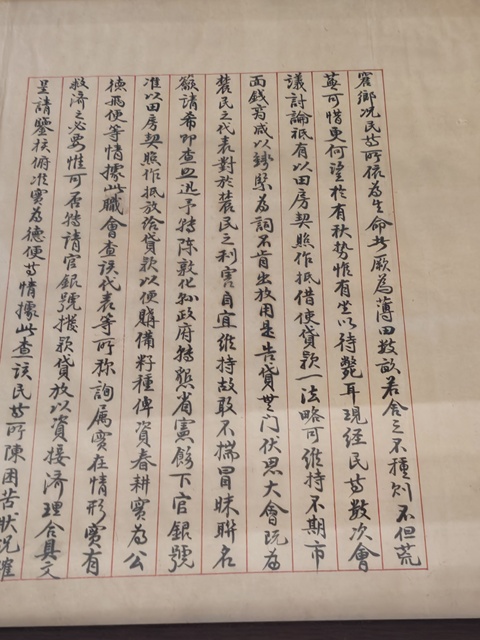 窘鄉况民等所依為生命者厥為薄田数畝若舍之不種則不但荒
蕪可惜更何望於有秋势惟有坐以待斃耳現経民等数次會
議討論祇有以田房契照作抵借使貸款一法略可維持不期市
面錢商咸以錢緊為詞不肯出放用是告貸無门伏思大會既為
農民之代表對於農民之利害自宜維持故敢不揣冒昧聯名
籲請希即查照迅予轉陳敦化縣政府轉懇省憲飭下官銀號
准以田房契照作抵放给貸款以便購備籽種俾資春耕實為公
德兩便等情據此職會查该代表等所称詢属實在情形實有
救濟之必要惟可否轉請官銀號撥款貸放以資接濟理合具文
呈請鑒核俯准實為德便等情據此查该民等所陳困苦狀況確